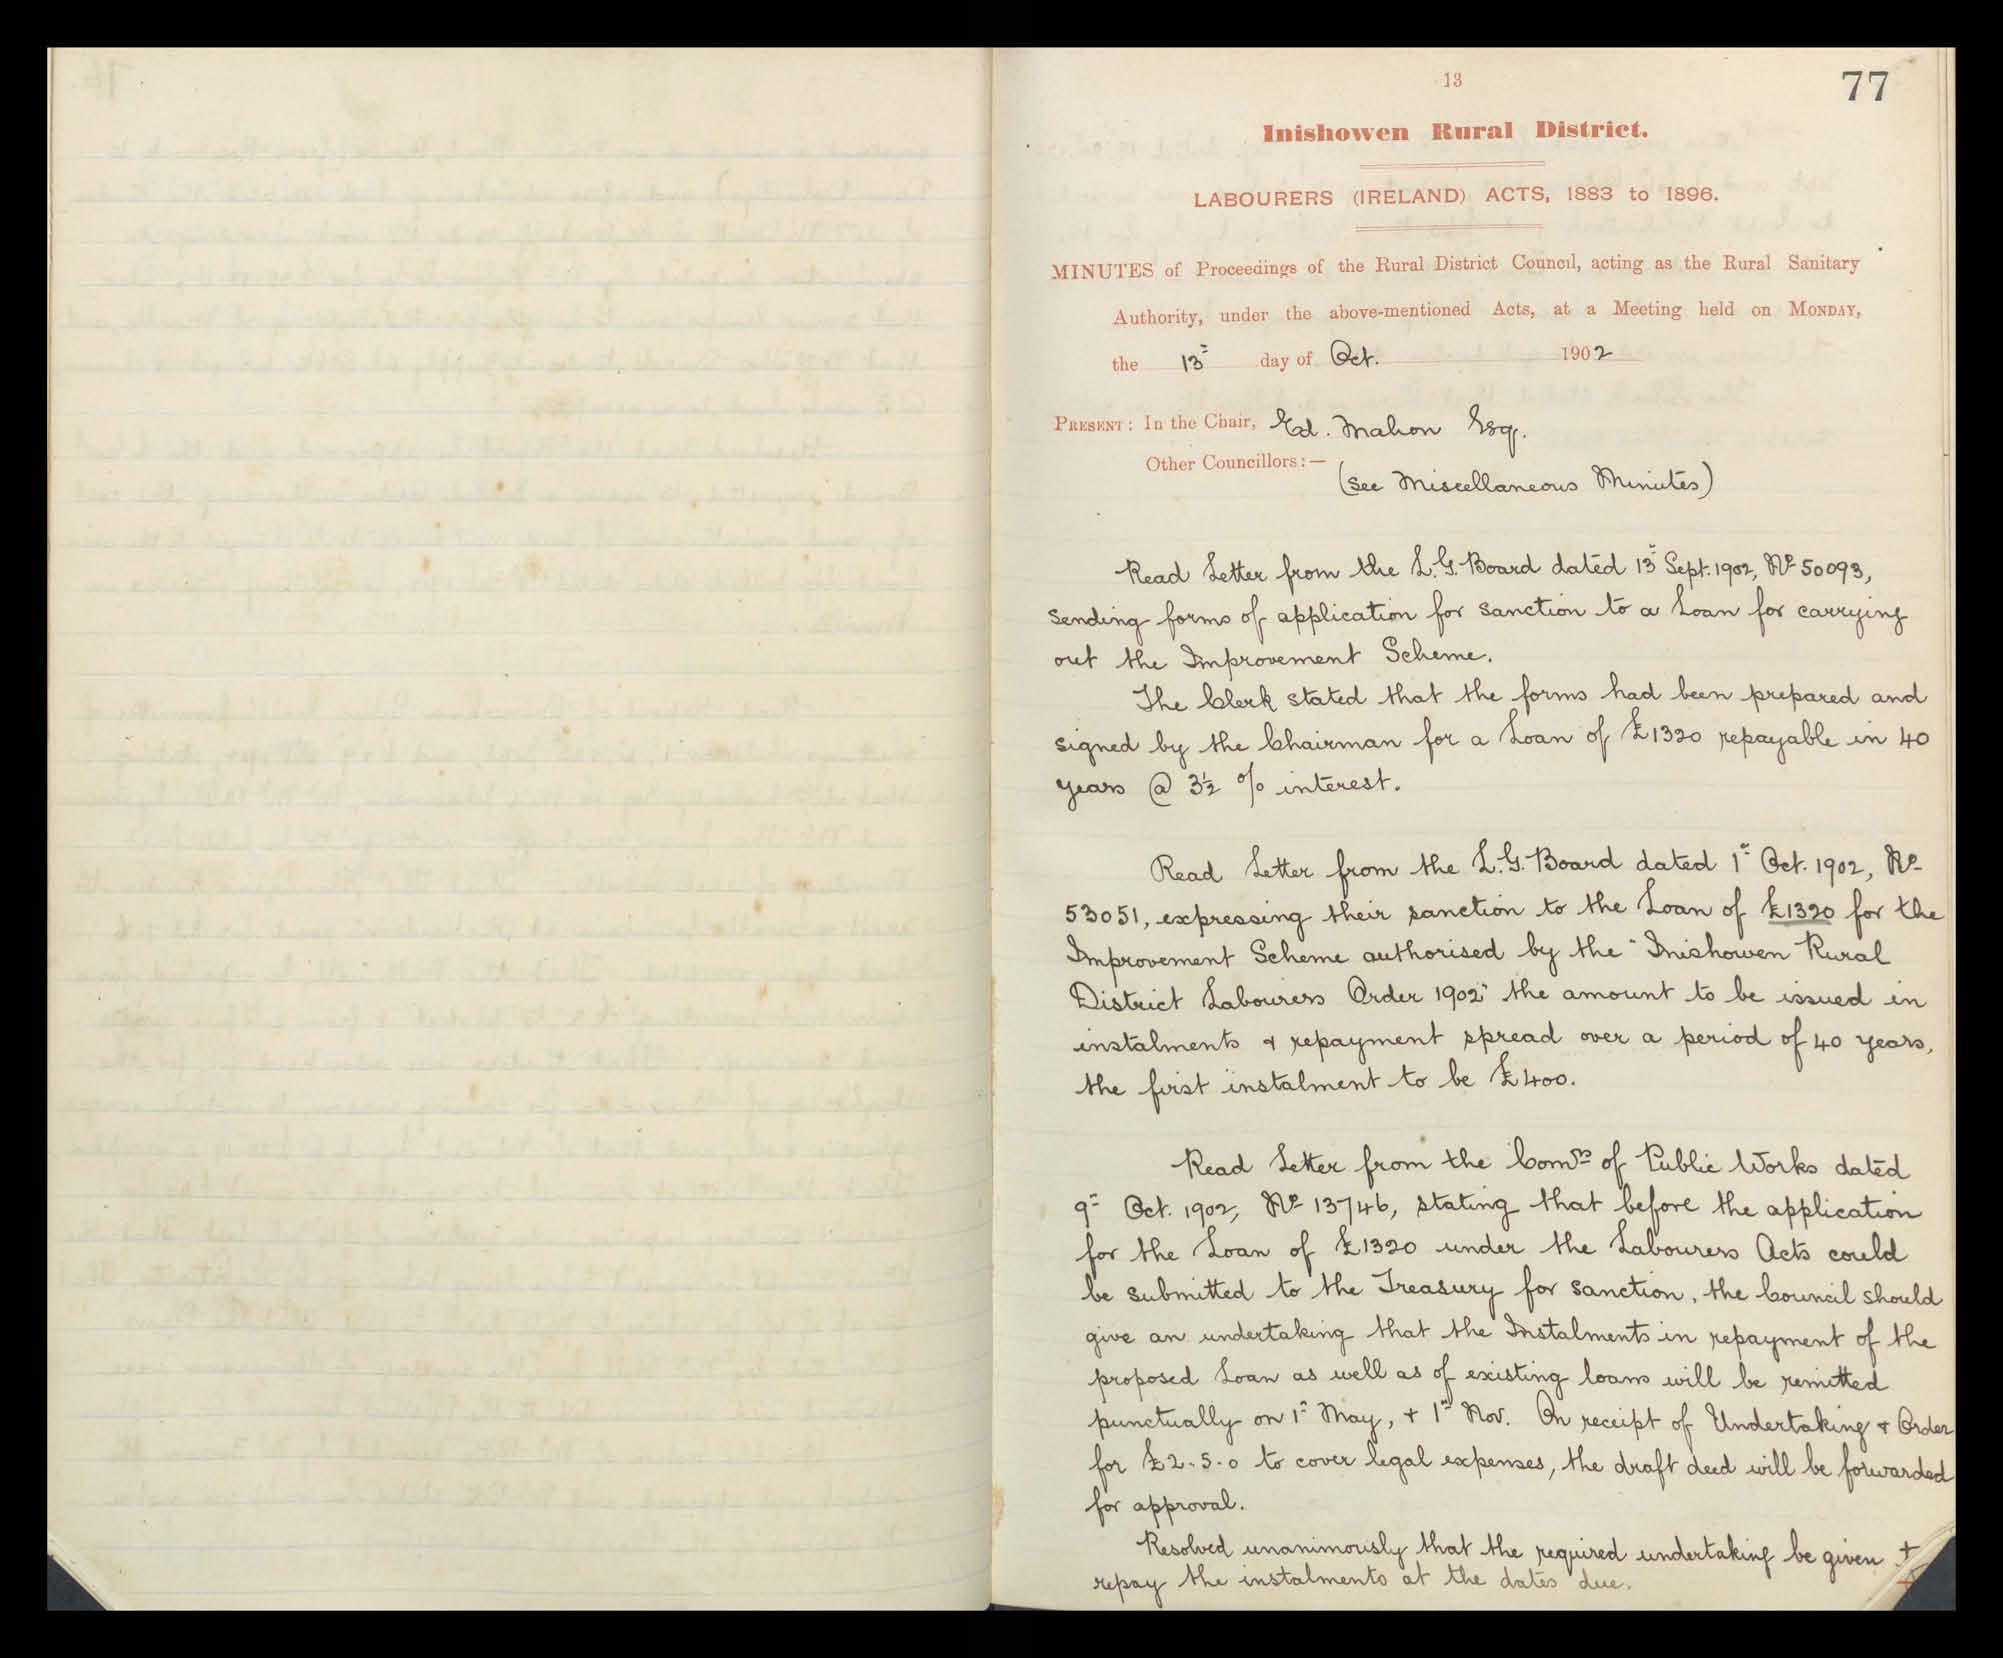 13
77
Inishowen Rural District.
LABOURERS (IRELAND) ACTS, 1883 to 1896.
MINUTES of Proceedings of the Rural District Council, acting as the Rural Sanitary
Authority, under the above-mentioned Acts, at a Meeting held on MONDAY,
the 13th day of Oct. 1902
PRESENT: In the Chair, Ed. Mahon Esq.
Other Councillors:—
(see Miscellaneous Minutes)
Read Letter from the L.G. Board dated 13th Sept. 1902, No 50093,
sending forms of application for sanction to a Loan for carrying
out the Improvement Scheme.
The Clerk stated that the forms had been prepared and
signed by the Chairman for a Loan of £1320 repayable in 40
years @ 3½ % interest.
Read Letter from the L.G. Board dated 1st Oct. 1902, No
53051, expressing their sanction to the Loan of £1320 for the
Improvement Scheme authorised by the "Inishowen Rural
District Labourers Order 1902" the amount to be issued in
instalments & repayment spread over a period of 40 years,
the first instalment to be £400.
Read Letter from the Comrs of Public Works dated
9th Oct. 1902, No 13746, stating that before the application
for the Loan of £1320 under the Labourers Acts could
be submitted to the Treasury for sanction, the Council should
give an undertaking that the Instalments in repayment of the
proposed Loan as well as of existing loans will be remitted
punctually on 1st May, & 1st Nov. On receipt of Undertaking & Order
for £2.5.0 to cover legal expenses, the draft deed will be forwarded
for approval.
Resolved unanimously that the required undertaking be given &
repay the instalments at the dates due.